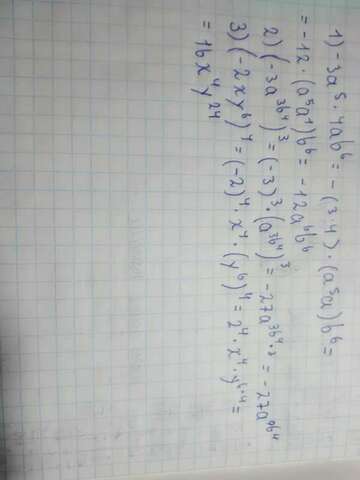 1) -3a⁵ · 4ab⁶ = -(3·4) · (a⁵a)b⁶ =
= -12 · (a⁵a¹)b⁶ = -12a⁶b⁶
2) (-3a³b⁴)³ = (-3)³ · (a³b⁴)³ = -27a³b⁴·³ = -27a⁹b⁴
3) (-2xy⁶)⁴ = (-2)⁴ · x⁴ · (y⁶)⁴ = 2⁴ · x⁴ · y⁶·⁴ =
= 16x⁴y²⁴